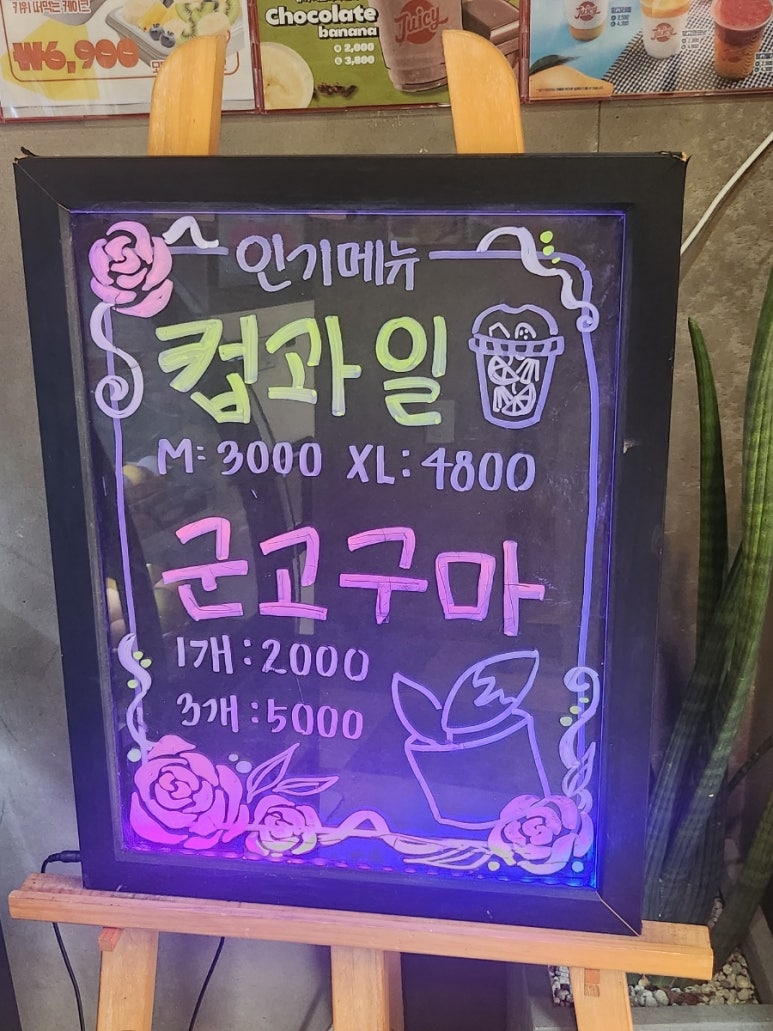 ₩6,900
Chocolate
banana
2,000
3,800
Juicy
인기메뉴
컵과일
M: 3000 XL: 4800
군고구마
1개: 2000
3개: 5000